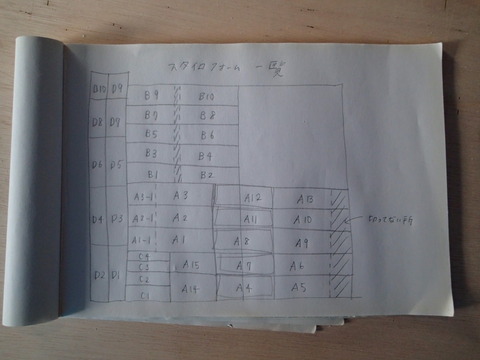 スタイロフォーム 一覧
D10 D9 B9 B10
D8 D7 B7 B8
B5 B6
D6 D5 B3 B4
B1 B2
A3-1 A3 A12 A13
D4 D3 A2-1 A2 A11 A10
A1-1 A1 A8 A9
C4
C3 A15 A7 A6
D2 D1 C2
C1 A14 A4 A5